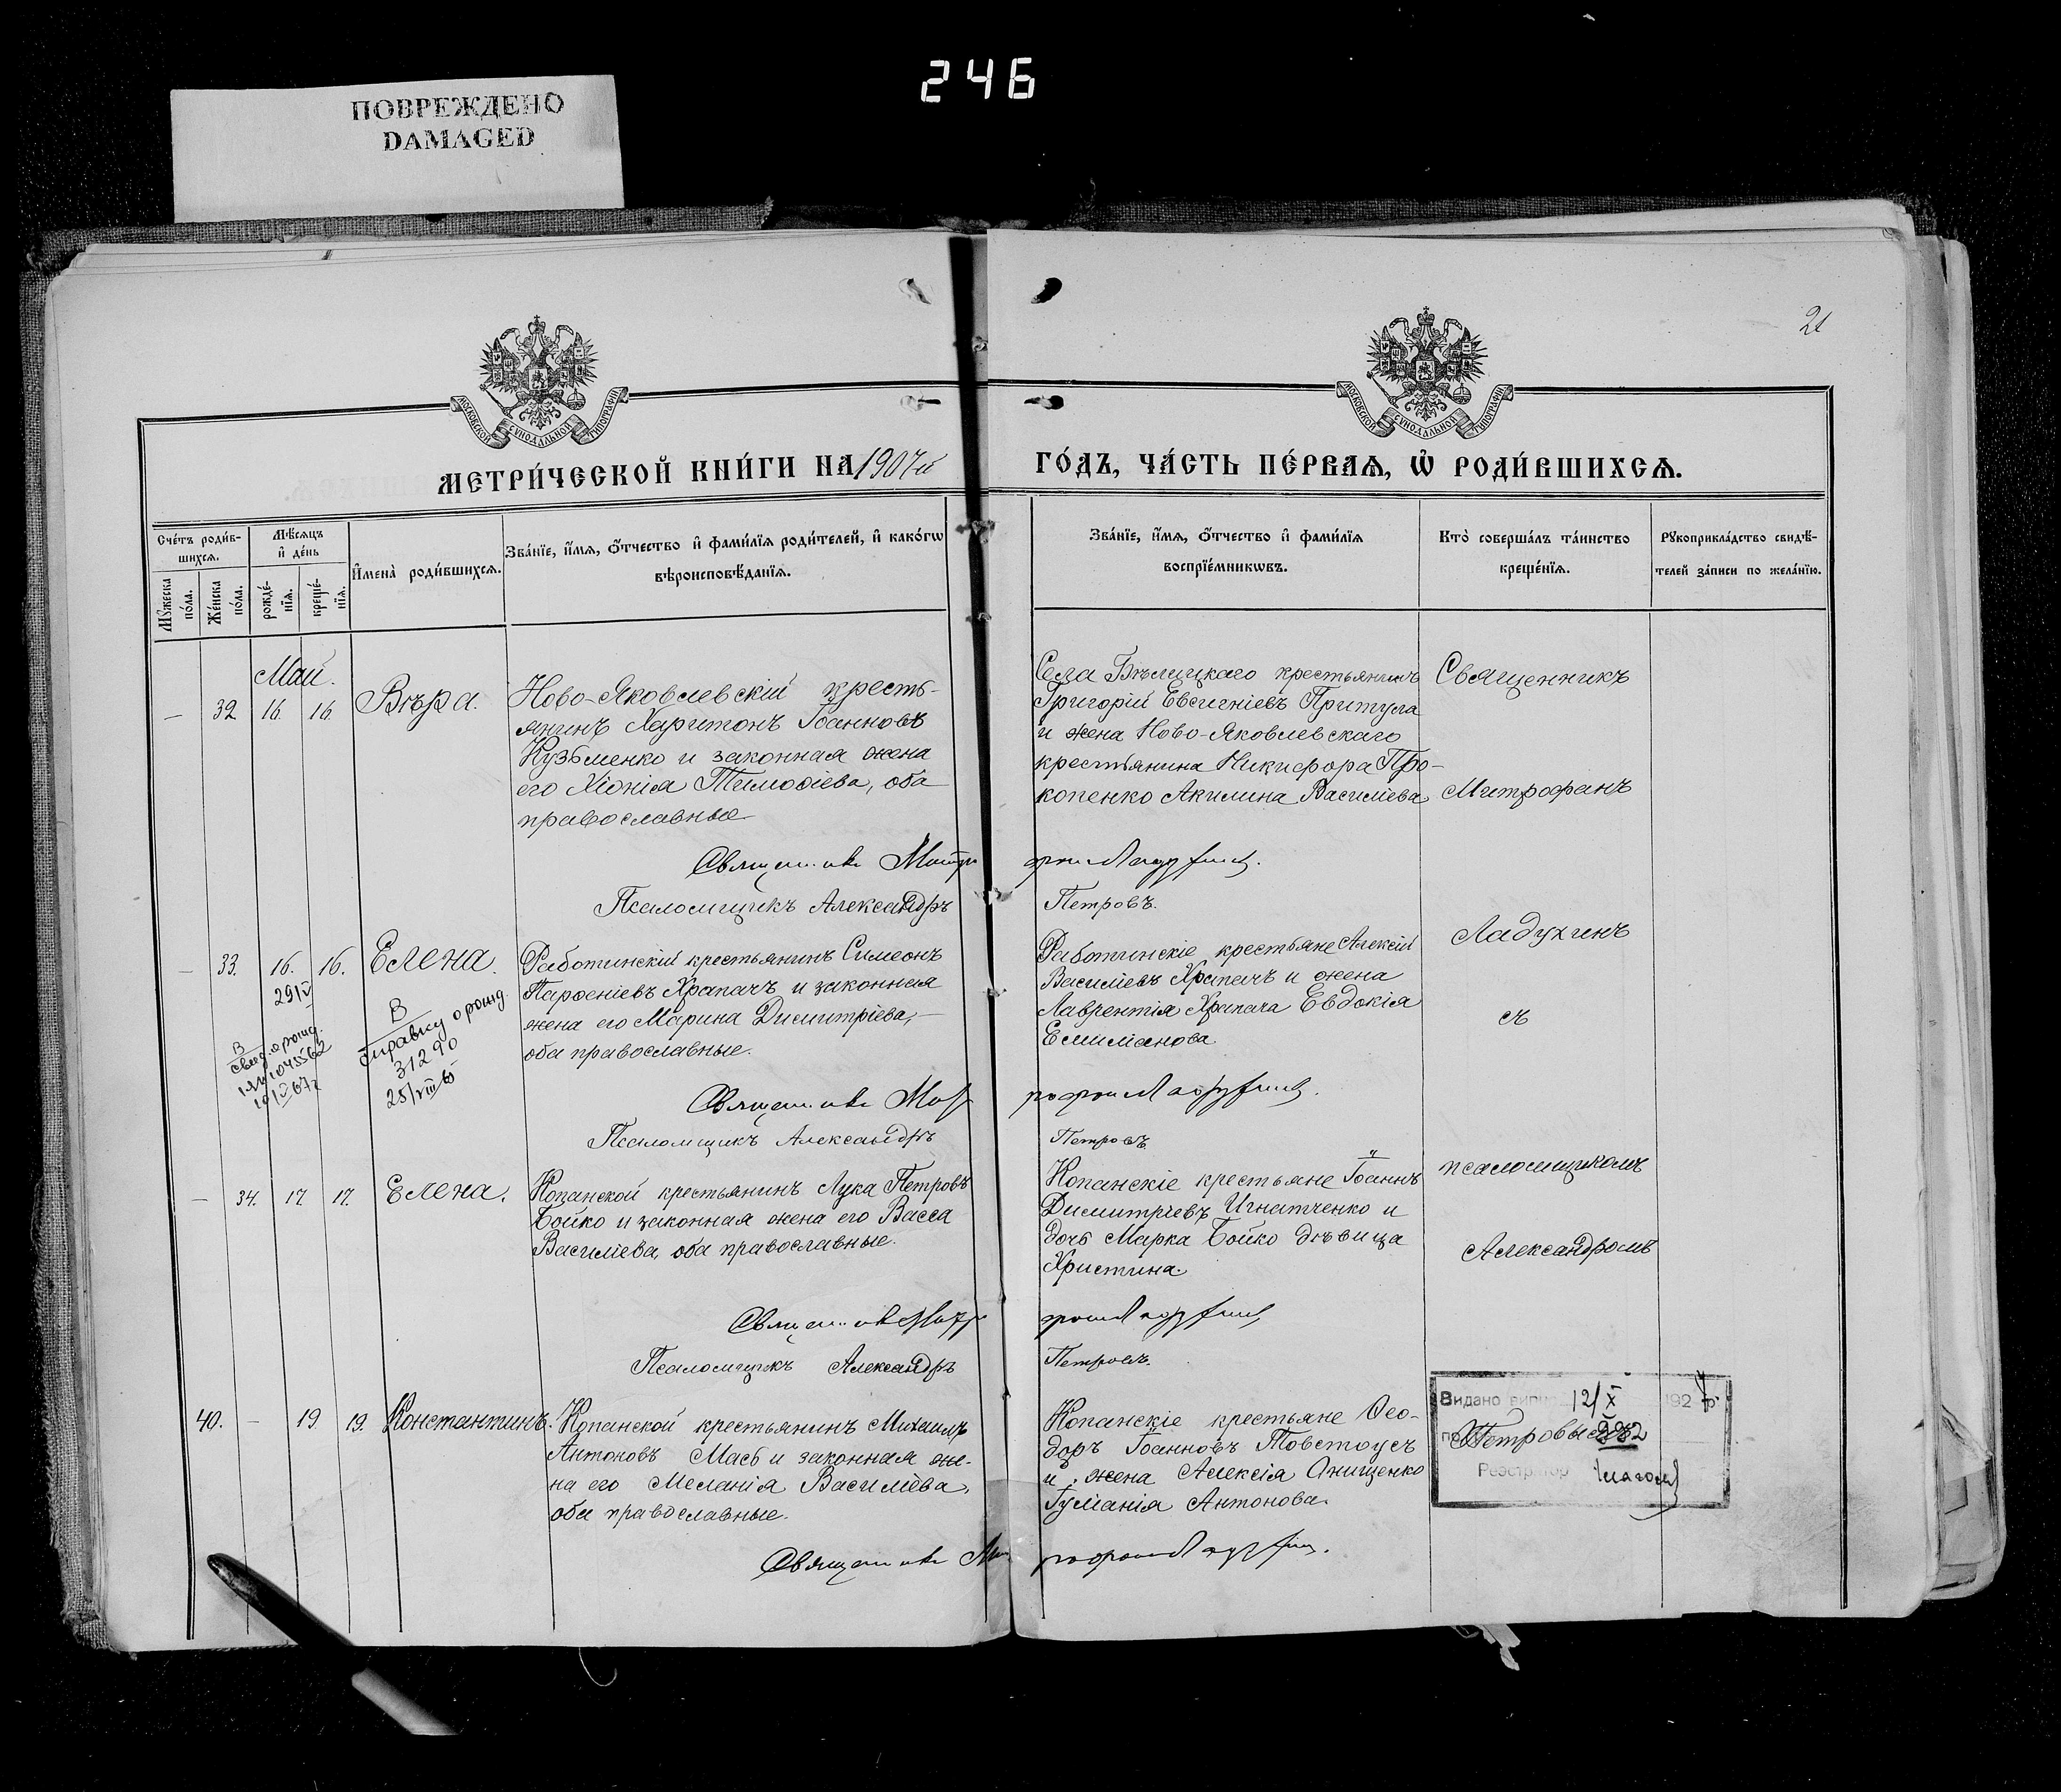 246
ПОВРЕЖДЕНО
DAMAGED
21
МОСКОВСКОЙ СѴНОДАЛЬНОЙ ТИПОГРАФІИ
МОСКОВСКОЙ СѴНОДАЛЬНОЙ ТИПОГРАФІИ
МЕТРИ́ЧЕСКОЙ КНИ́ГИ НА 1907й ГО́ДЪ, ЧА́СТЬ ПЕ́РВАѦ, Ѡ҆ РОДИ́ВШИХСѦ.
Счётъ роди́в-
шихсѧ.
Мѹжеска по́ла.
Же́нска по́ла.
Мѣ́сѧцъ
и҆ де́нь
рожде́-
нїѧ.
креще́-
нїѧ.
И҆мена̀ роди́вшихсѧ.
Зва́нїе, и҆́мѧ, ѻ҆́тчество и҆ фами́лїѧ роди́телей, и҆ како́гѡ
вѣроисповѣ́данїѧ.
Зва́нїе, и҆́мѧ, ѻ҆́тчество и҆ фами́лїѧ
воспрїе́мникѡвъ.
Кто̀ соверша́лъ та́инство
креще́нїѧ.
Рѹкоприкла́дство свидѣ́-
телей за́писи по жела́нїю.
Май.
— 32 16. 16. Вѣра.
Ново-Яковлевскій кресть-
янинъ Харитонъ Іоанновъ
Кузьменко и законная жена
его Хіонія Тимоѳіева, оба
православные
Села Бѣлицкаго крестьянинъ
Григорій Евсигніевъ Притула
и жена Ново-Яковлевскаго
крестьянина Никифора Про-
копенко Акилина Василіева
Священникъ
Митрофанъ
Ладухинъ
съ
псаломщикомъ
Александромъ
Псаломщикъ Александръ Петровъ.
— 33. 16. 16. Елена.
Работинскій крестьянинъ Симеонъ
Парѳеніевъ Храпачъ и законная
жена его Марина Димитріева,—
оба православные.
Работинскіе крестьяне Алексій
Василіевъ Храпачъ и жена
Лаврентія Храпача Евдокія
Емиліанова
В
справку о рожд.
31290
25/VIII
Псаломщикъ Александръ Петровъ
— 34. 17. 17. Елена.
Копанской крестьянинъ Лука Петровъ
Бойко и законная жена его Васса
Василіева, оба православные.
Копанскіе крестьяне Іоаннъ
Димитріевъ Игнатченко и
дочь Марка Бойко дѣвица
Христина.
Псаломщикъ Александръ Петровъ.
40. — 19 19. Константинъ.
Копанской крестьянинъ Михаилъ
Антоновъ Мась и законная же-
на его Меланія Василіева,
оба православные.
Копанскіе крестьяне Ѳео-
доръ Іоанновъ Товстоусъ
и жена Алексія Онищенко
Іуліанія Антонова.
Видано 12/X 192
Реєстратор